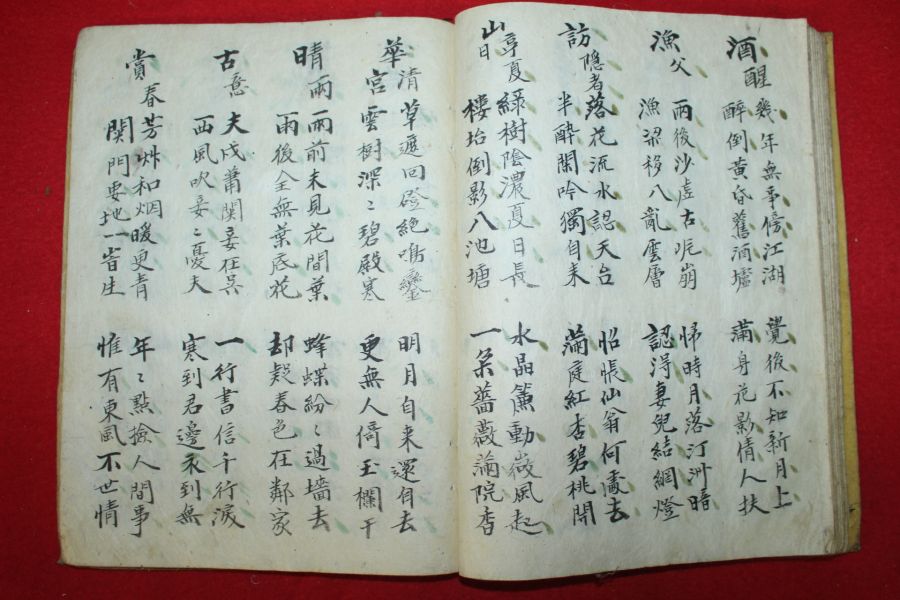 酒醒
幾年無事傍江湖
醉倒黃昏舊酒壚
覺後不知新月上
滿身花影倩人扶
漁父
雨後沙虛古岸崩
漁梁移入亂雲層
歸時月落汀洲暗
認得妻兒結網燈
訪隱者
落花流水認天台
半醉閑吟獨自來
怊悵仙翁何處去
滿庭紅杏碧桃開
山亭夏日
綠樹陰濃夏日長
樓坮倒影入池塘
水晶簾動微風起
一朶薔薇滿院香
華清宮
草遮回磴絶鳴鑾
雲樹深〻碧殿寒
明月自来還自去
更無人倚玉欄干
晴雨
雨前未見花間葉
雨後全無葉底花
蜂蝶紛〻過墻去
却疑春色在鄰家
古意
夫戍蕭關妾在吳
西風吹妾〻憂夫
一行書信千行淚
寒到君邊衣到無
賞春
芳艸和烟暖更青
関門要地一旹生
年〻點撿人間事
惟有東風不世情